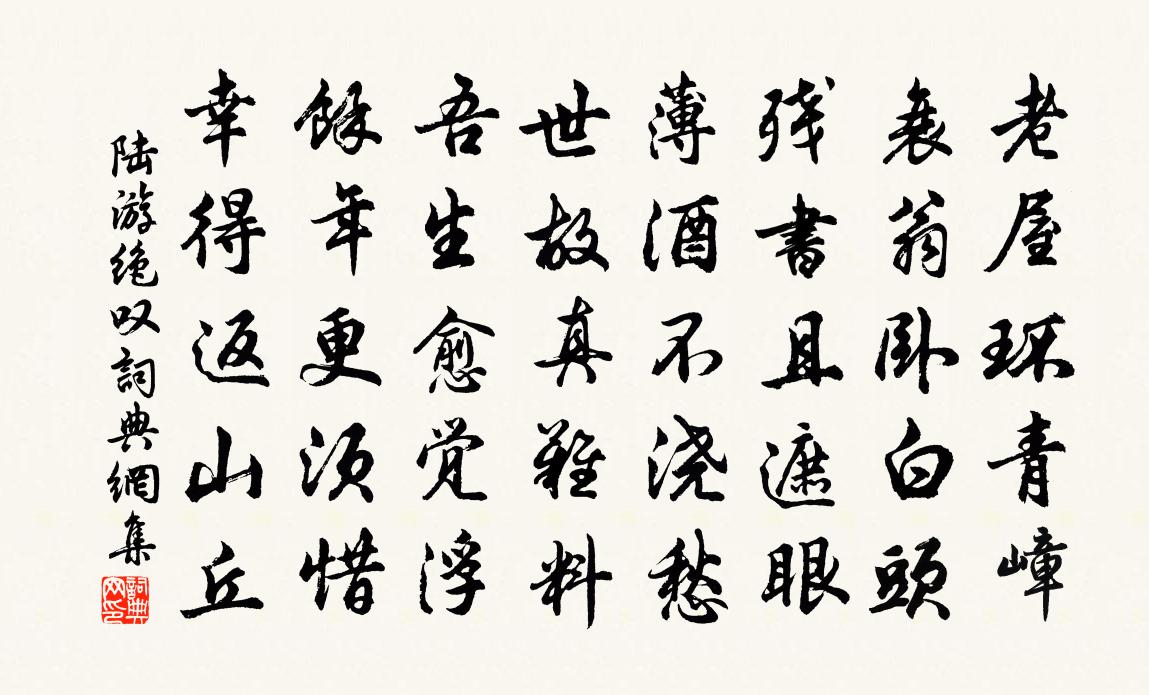 老屋环青嶂
衰翁卧白頭
残書且遮眼
薄酒不浇愁
世故真難料
吾生愈觉浮
餘年更須惜
幸得返山丘
陆游绝叹詞典網集
詞典网印